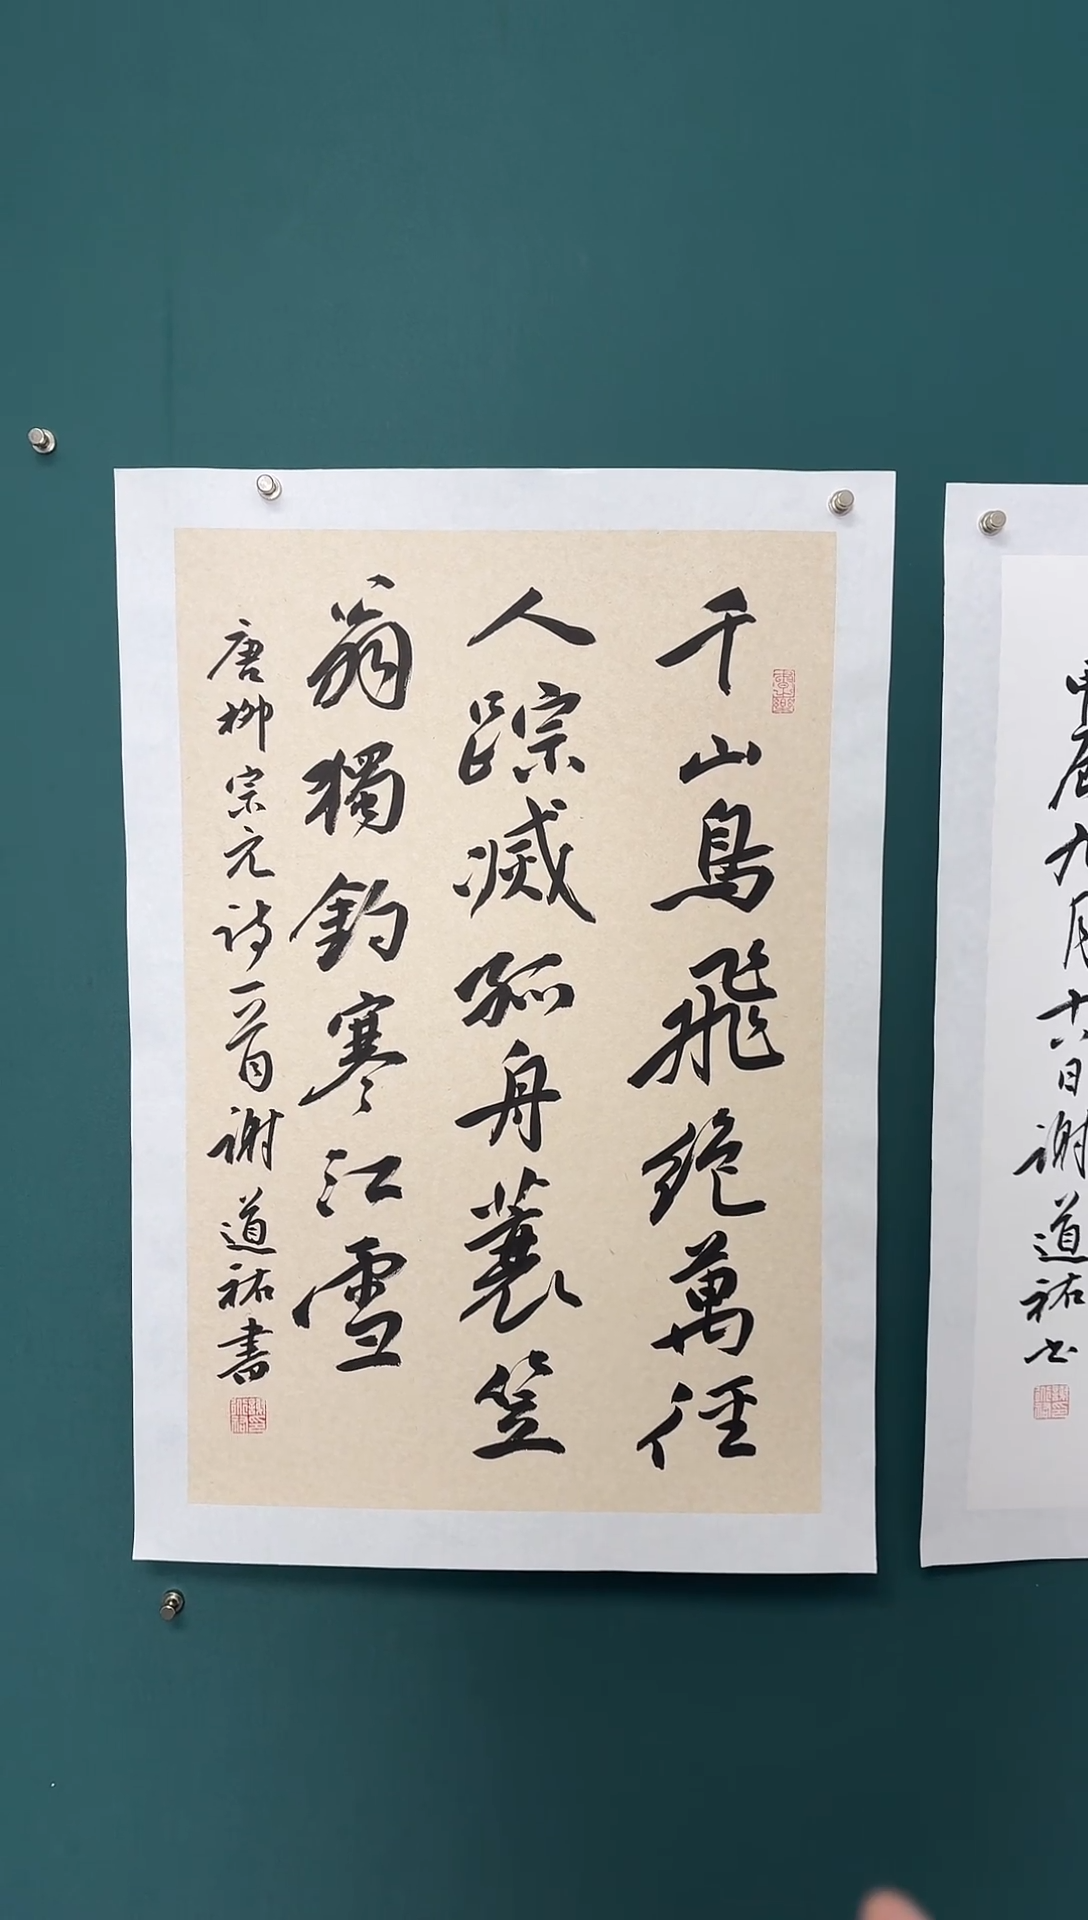 千山鳥飛絕萬徑
人踪滅孤舟蓑笠
翁獨釣寒江雪
唐柳宗元詩一首謝道祐書
甲辰九月 日謝道祐书